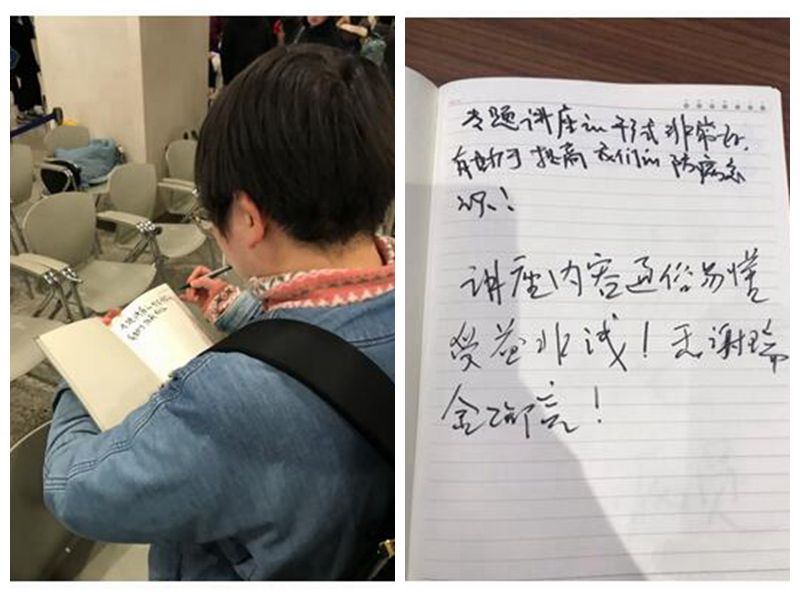 专题讲座的形式非常好,
有助于提高我们的防病意
识!
讲座内容通俗易懂
受益非浅! 谢瑞
金!